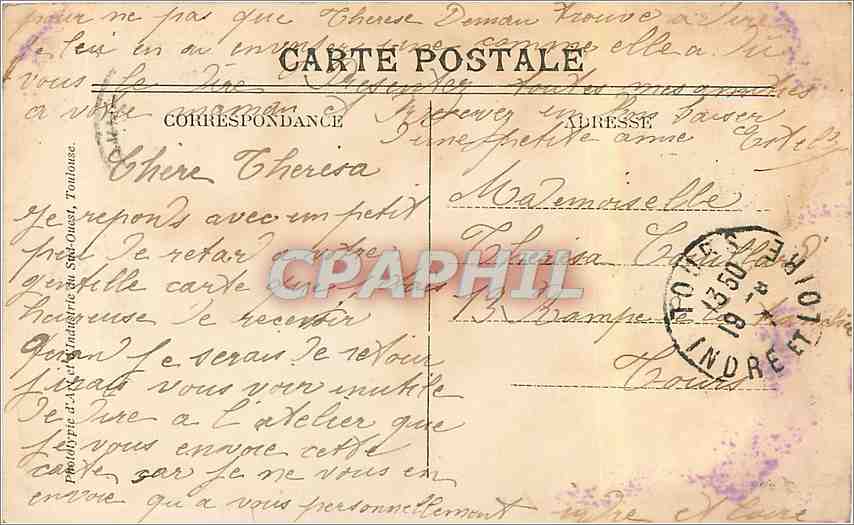 pour ne pas que Therese Deman trouve a dire
je leu en ai envoyer une comme elle a du
CARTE POSTALE
vous le dire Presenter toutes mes amities
a votre maman et recevez un bon baiser
d'une petite amie
CORRESPONDANCE
ADRESSE
Chère Theresa
Je reponds avec un petit
peu de retard a votre
gentille carte que j'etais
heureuse de recevoir
Quan je serais de retour
j'irais vous voir inutile
de dire a l'atelier que
je vous envoie cette
carte car je ne vous en
envoie qu'a vous personnellement
Mademoiselle
Theresa
13 Rampe de la
Tours
indre et Loire
TOURS
13 50
19
INDRE ET LOIRE
Phototypie d'Art et d'Industrie du Sud-Ouest, Toulouse.
CPARAMA